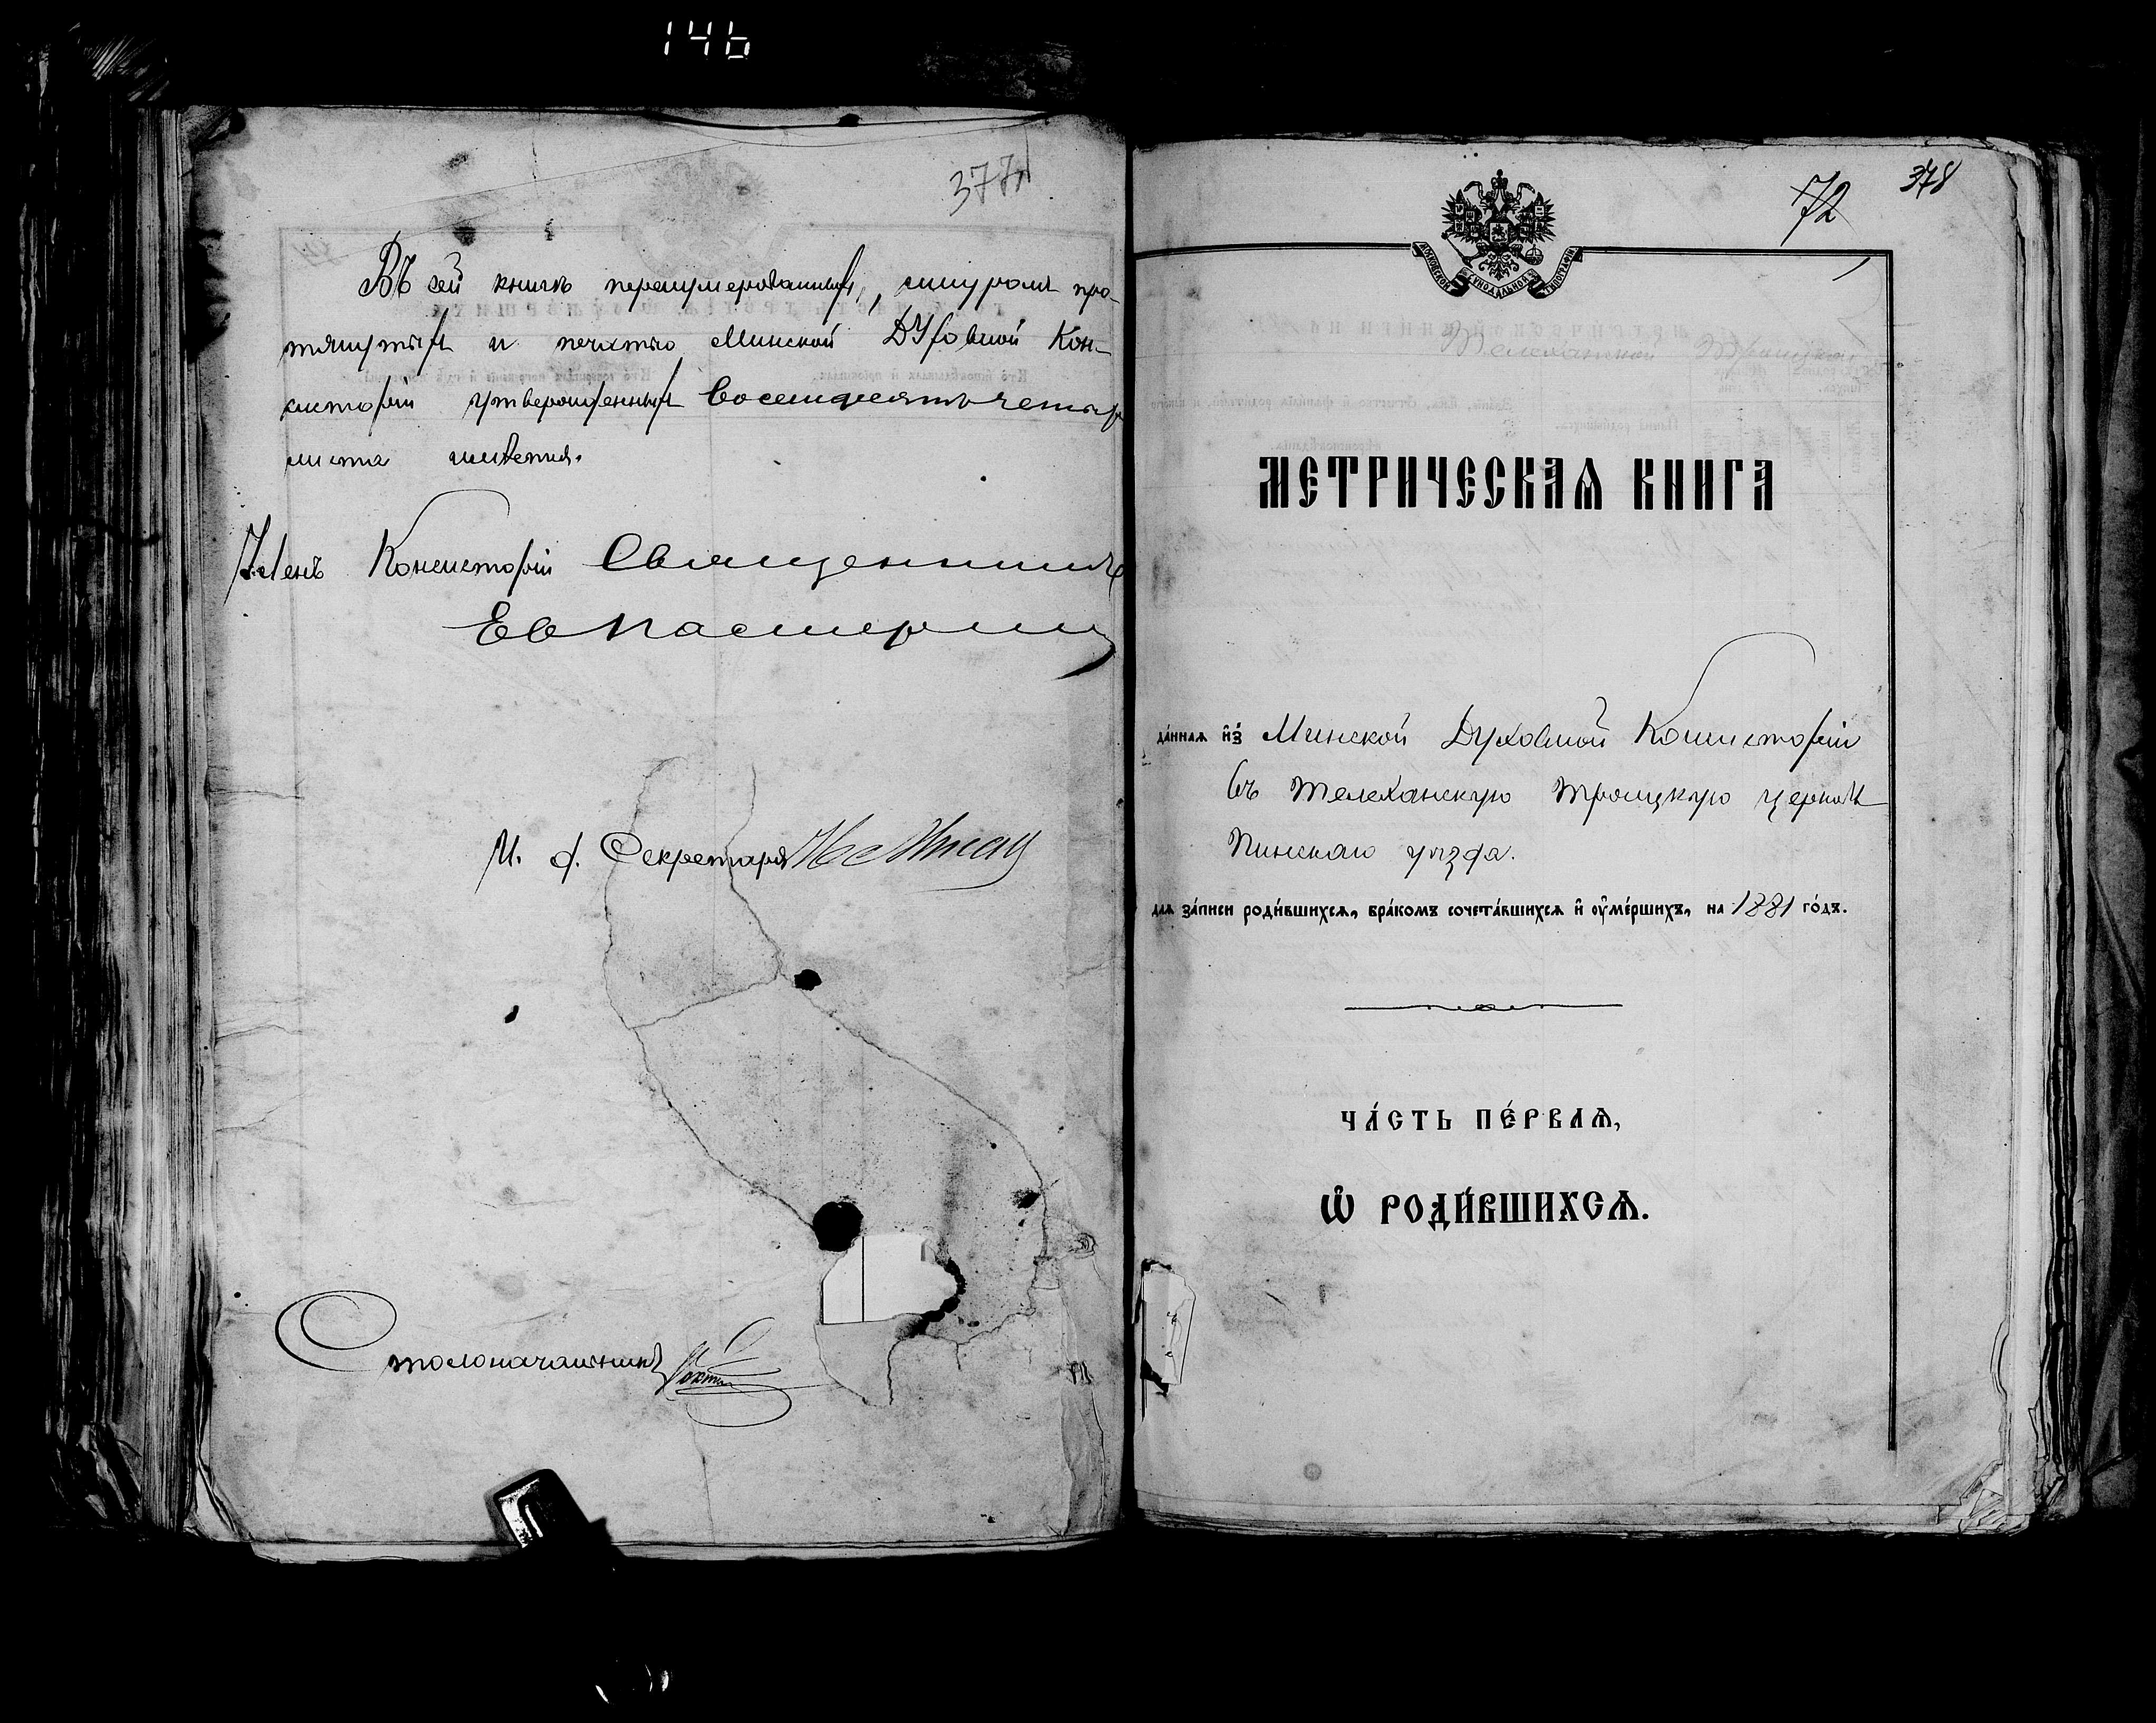 146
377
Въ сей книгѣ перенумерованныхъ, шнуромъ про-
тянутыхъ и печатью Минской Духовной Кон-
систоріи утвержденныхъ восемдесятъ четыр
листа имѣется.
Членъ Консисторіи Священникъ
И. д. Секретаря
Столоначальникъ
72
378
МОСКОВСКОЙ СѴНОДАЛЬНОЙ ТИПОГРАФІИ
МЕТРИЧЕСКАѦ КНИГА
да́ннаѧ и҆з̾ Минской Духовной Консисторіи
въ Телеханскую Троицкую церковь
Пинскаго уѣзда.
длѧ за́писи роди́вшихсѧ, бра́комъ сочета́вшихсѧ и҆ ᲂу҆ме́ршихъ, на 1881 го́дъ.
ЧА́СТЬ ПЕ́РВАѦ,
Ѽ РОДИ́ВШИХСѦ.